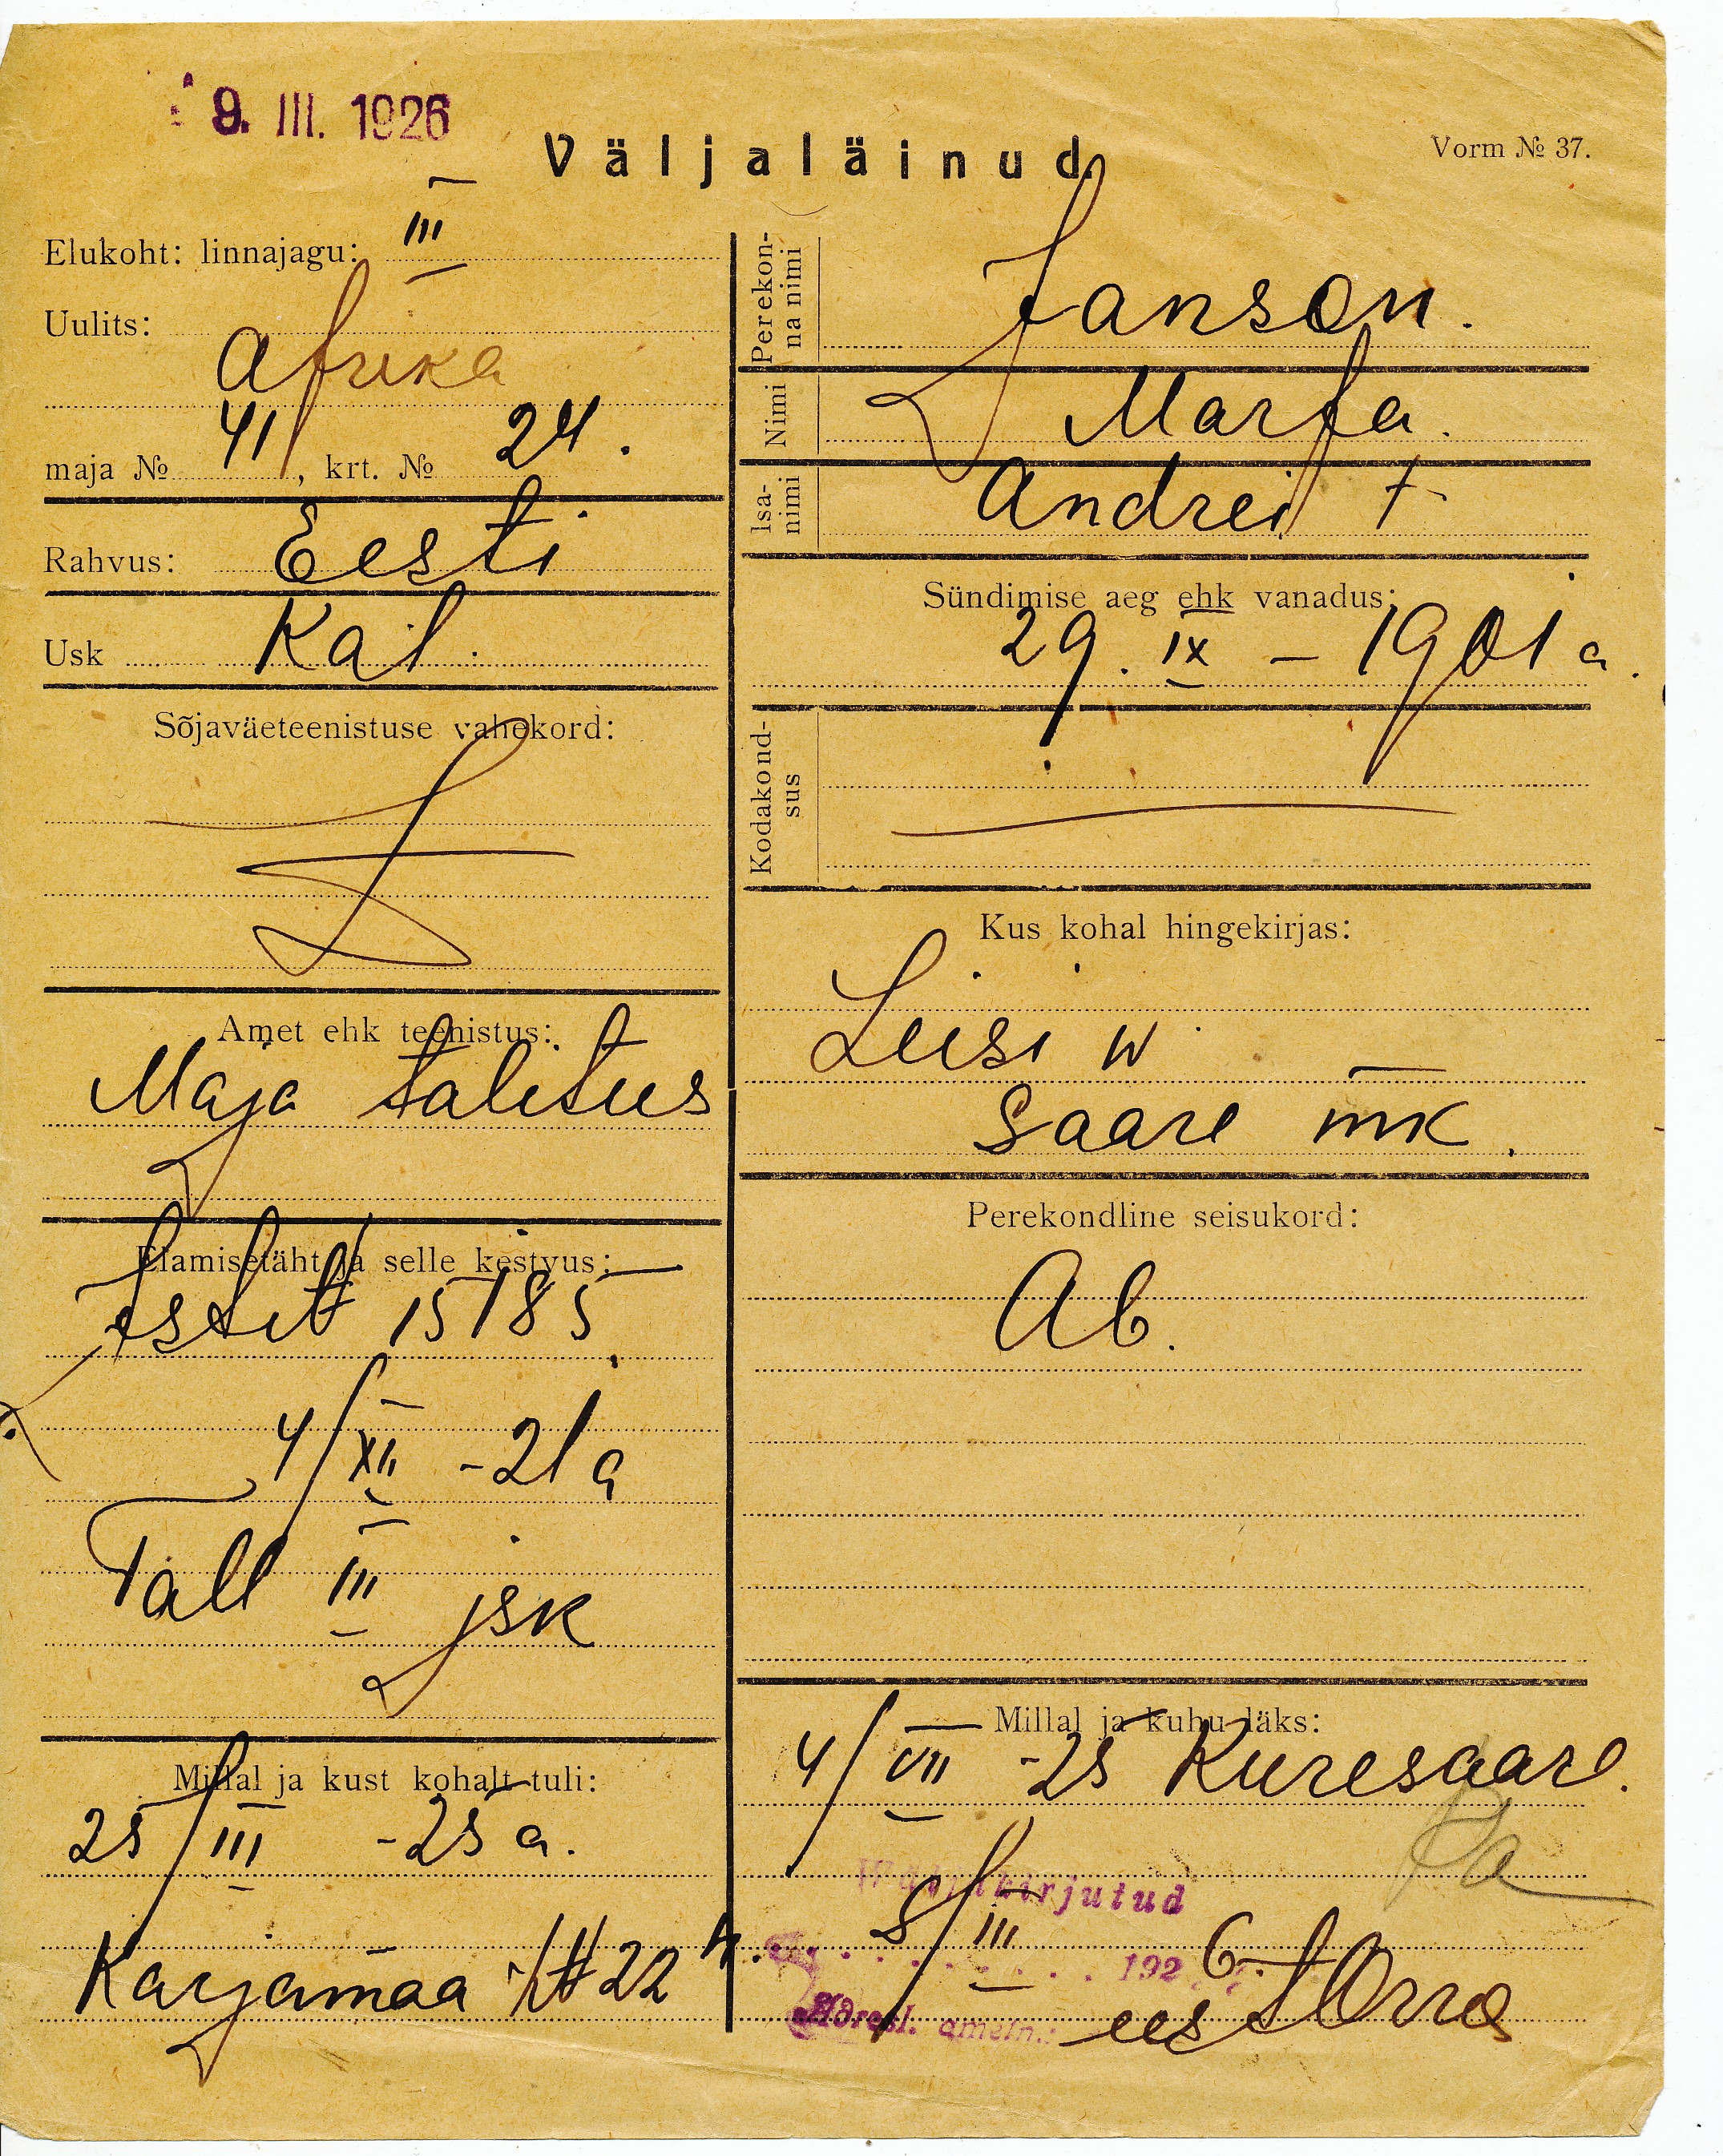 9. III. 1926
Väljaläinud.
Vorm № 37.
Elukoht: linnajagu: III
Uulits:
Afrika
maja № 41, krt. № 24.
Rahvus: Eesti
Usk
Sõjaväeteenistuse vahekord:
Amet ehk teenistus:
Maja talitus
Elamisetäht ja selle kestvus:
15185
4/XII -21 a
Tall III jsk
Millal ja kust kohalt tuli:
25/III -25 a.
Karjamaa 22
Perekonna nimi
Janson.
Nimi
Marta.
Isanimi
Andrei †
Sündimise aeg ehk vanadus:
29. IX – 1901 a.
Kodakondsus
Kus kohal hingekirjas:
Leisi w.
Saare mk.
Perekondline seisukord:
Ab.
Millal ja kuhu läks:
4/VII -25 Kuresaare.
Wäljakirjutud
8/III 1926
Adressl. ametn.: